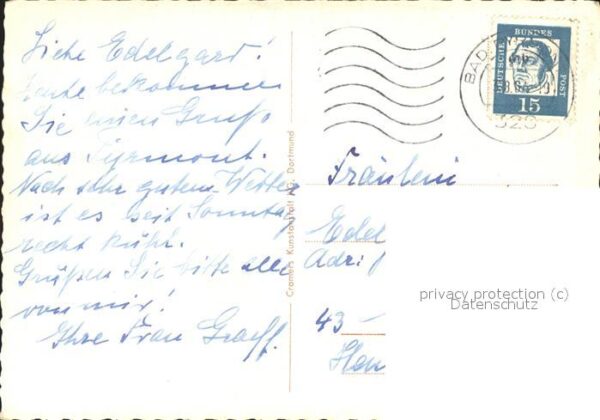 Liebe Edelgard!
heute bekommen
Sie einen Gruß
aus Pyrmont.
Nach sehr gutem Wetter
ist es seit Sonntag
recht kühl.
Grüßen Sie bitte alle
von mir!
Ihre Frau Graeff.
Cramers Kunstanstalt KG. Dortmund
DEUTSCHE BUNDES POST
15
BAD
328
Fräulein
Edel
Adr:
43 –
privacy protection (c)
Datenschutz